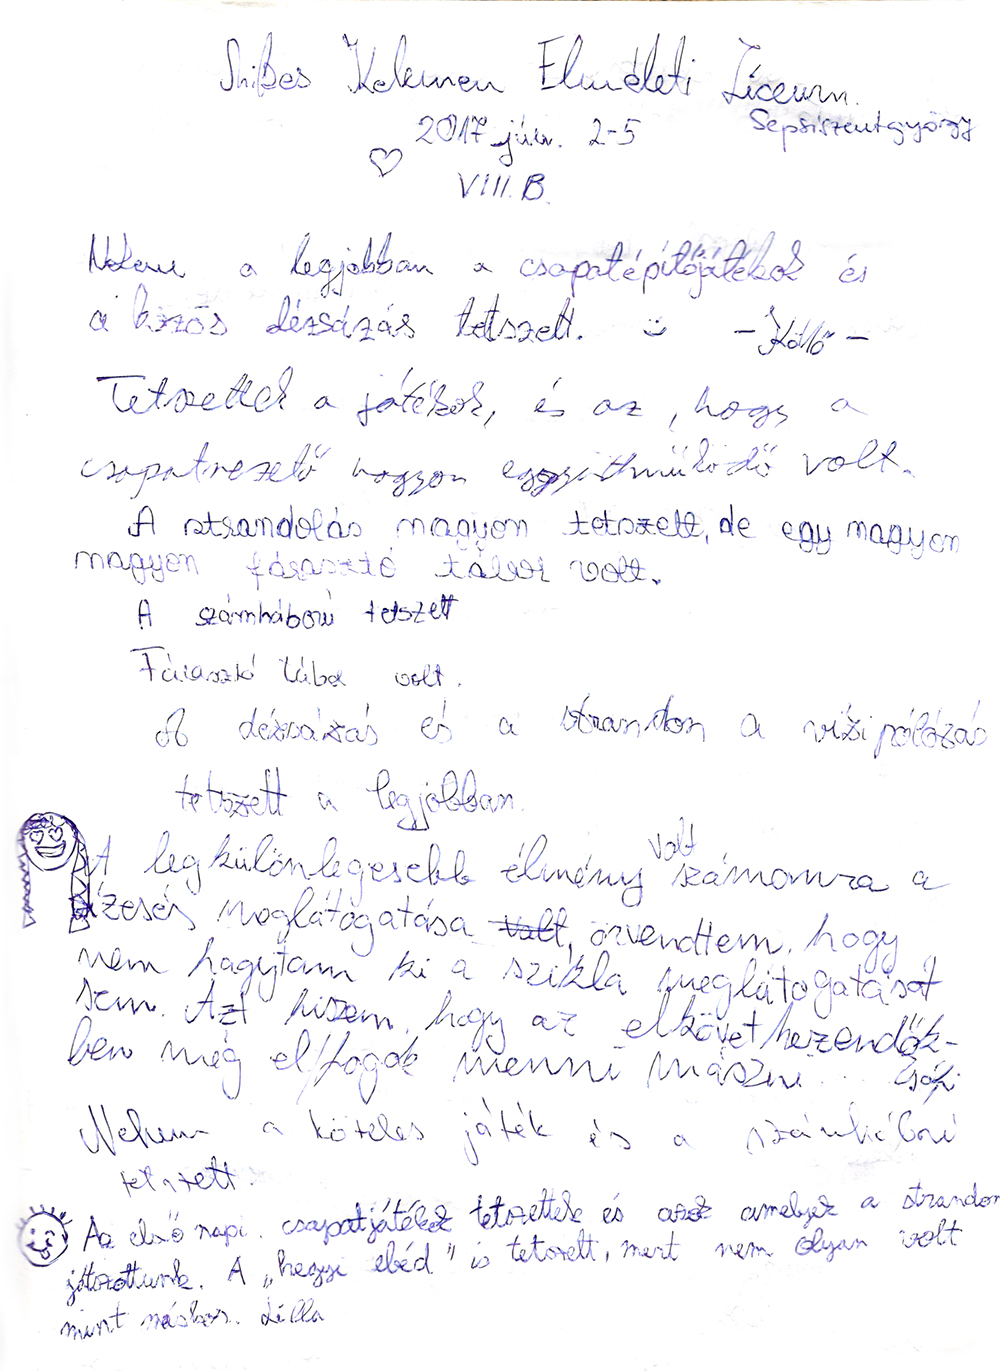 Mikes Kelemen Elméleti Líceum.
Sepsiszentgyörgy
2017 jún. 2-5
VIII. B.
Nekem a legjobban a csapatépítőjátékok és
a közös dézsázás tetszett. -Kölló-
Tetszettek a játékok, és az, hogy a
csapatvezető nagyon eggyüttműködő volt.
A strandolás nagyon tetszett, de egy nagyon
nagyon fárasztó tábor volt.
A számháború tetszett
Fárasztó tábor volt.
A dézsázás és a strandon a vízipólózás
tetszett a legjobban.
A legkülönlegesebb élmény volt számomra a
vízesés meglátogatása volt, örvendtem, hogy
nem hagytam ki a szikla meglátogatását
sem. Azt hiszem, hogy az elkövetkezendők-
ben még el fogok menni mászni... Zsófi
Nekem a köteles játék és a számháború
tetszett.
Az első napi csapatjátékok tetszettek és azok amelyek a strandon
játszottunk. A „hegyi ebéd" is tetszett, mert nem olyan volt
mint máskor. Lilla